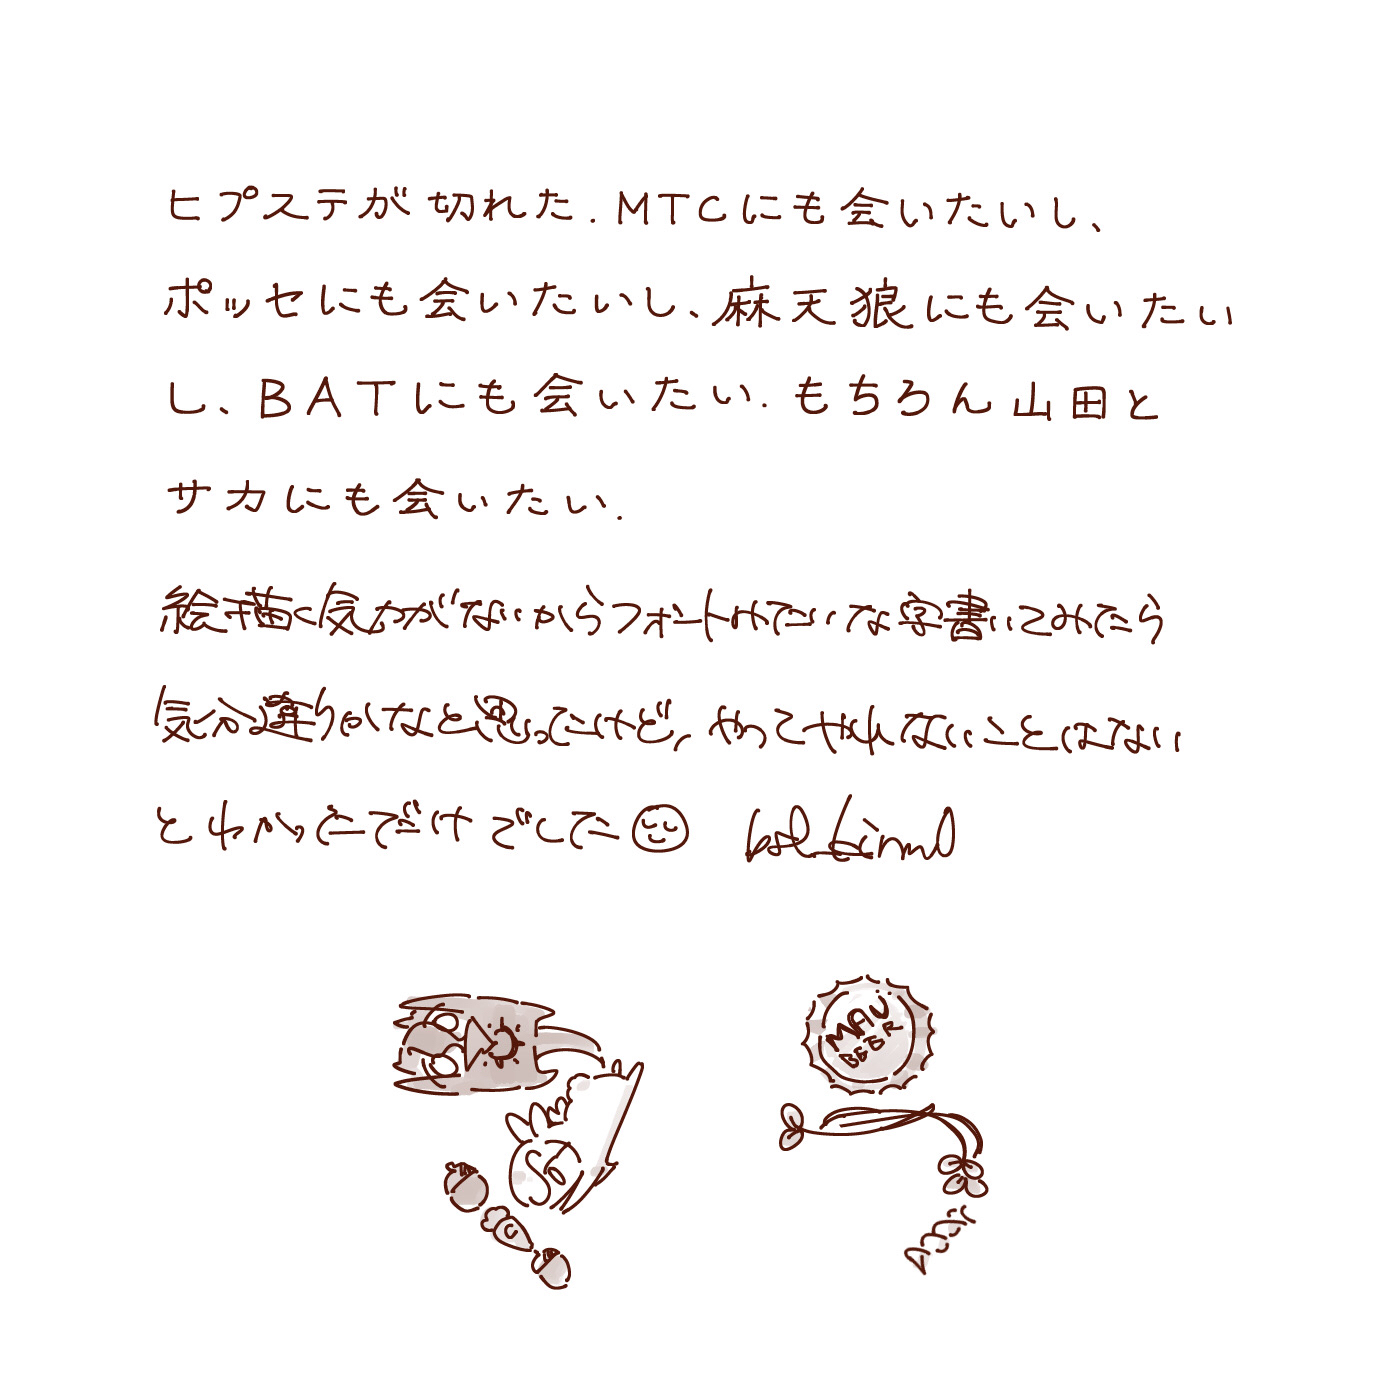 ヒプステが切れた.MTCにも会いたいし、
ポッセにも会いたいし、麻天狼にも会いたい
し、BATにも会いたい.もちろん山田と
サカにも会いたい.
絵描く気力がないからフォントみたいな字書いてみたら
気分違うかなと思ったけど、やってやれないことはない
とわかっただけでした
MAU
BEER
C